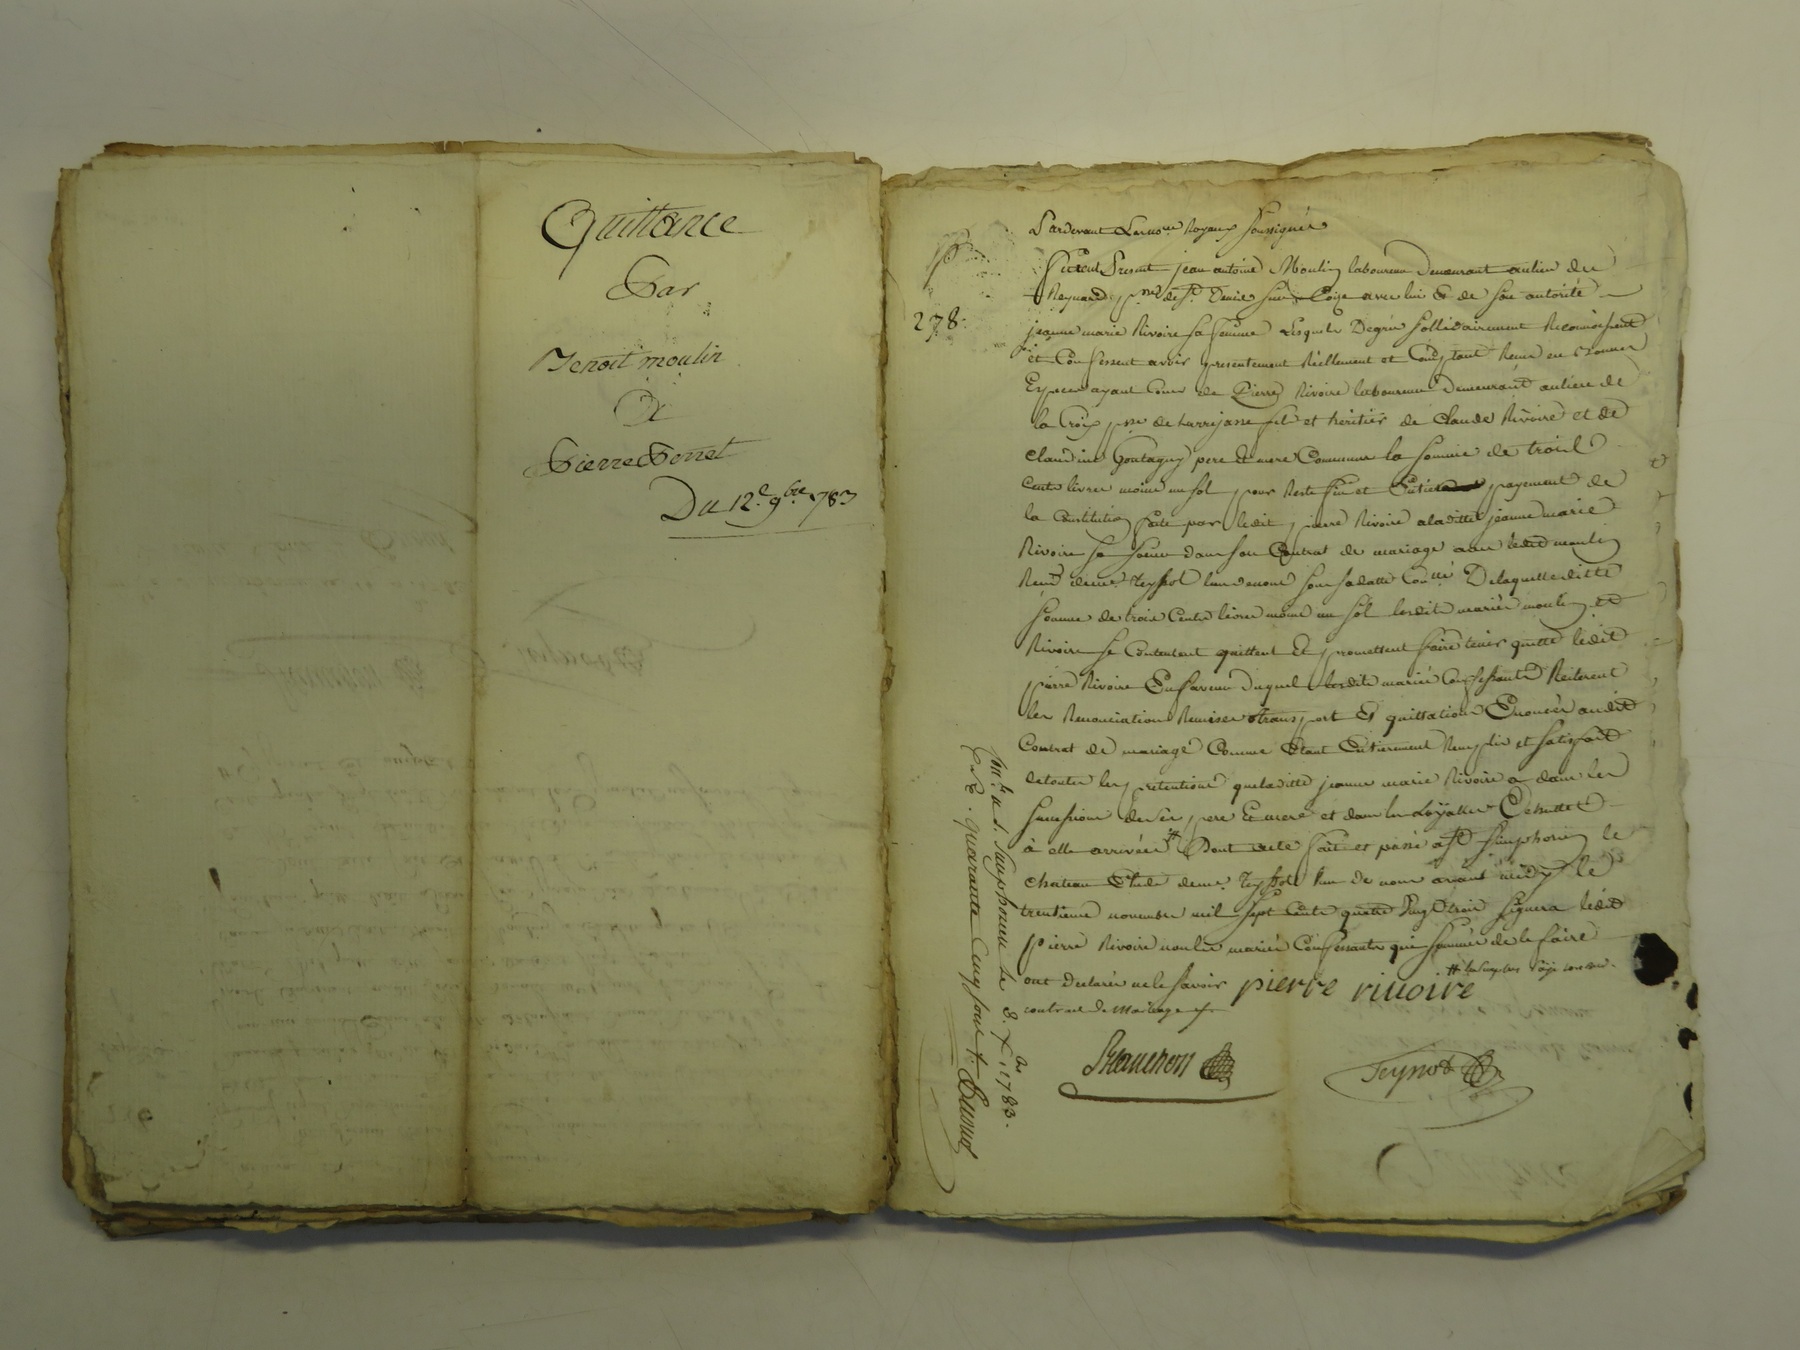 Quittance
Par
Benoit moulin
A
Pierre Bonnet
Du 12.e 9bre 1783
278.
Pardevant Les no.res Royaux soussignés
furent Presents jean antoine Moulin laboureur Demeurant au lieu de
Reynard p.sse de S.t Denis sur Coize avec lui & de son autorité
jeanne marie Rivoire sa femme Lesquels Degrés sollidairement Reconnoissent
et Confessent avoir presentement Réellement et Comptant Reçu en Bonnes
Especes ayant Cours de Pierre Rivoire laboureur Demeurant au lieu de
la Croix p.sse de Larrajasse fils et heritier de Claude Rivoire et de
Claudine Goutagny pere & mere Communs la somme de trois
Cents livres moins un sol pour Reste fin et Entier payement de
la Constitution faite par ledit pierre Rivoire a laditte jeanne marie
Rivoire sa soeur dans son Contrat de mariage avec ledit moulin
Reçu de me. Teyssot l'un de nous sous sa datte Con.lé De laquelle ditte
somme de trois Cents livres moins un sol lesdits mariés moulin et
Rivoire se Contentent quittent & promettent faire tenir quitte ledit
pierre Rivoire En faveur duquel lesdits mariés Confessants Reiterent
les Renonciations Remises transport & quittations Enoncés audit
Contrat de mariage Comme Etant Entierement Remplis et satisfaits
de toutes les pretentions que laditte jeanne marie Rivoire a dans les
successions de ses pere & mere et dans les Loÿattes Echuttes
à elle arrivées # Dont acte fait et passé a S.t simphorien le
chateau Etude de me. Teyssot l'un de nous avant midy le
trentieme novembre mil sept Cents quatre Vingt trois signera ledit
Pierre Rivoire non les mariés Confessants qui sommés de le faire
ont declarés ne le savoir pierre rivoire
contrat de mariage
Blanchon
Teyssot
Con.lé a S. Simphorien le 8. Xbre 1783.
R. quarante Cinq sous